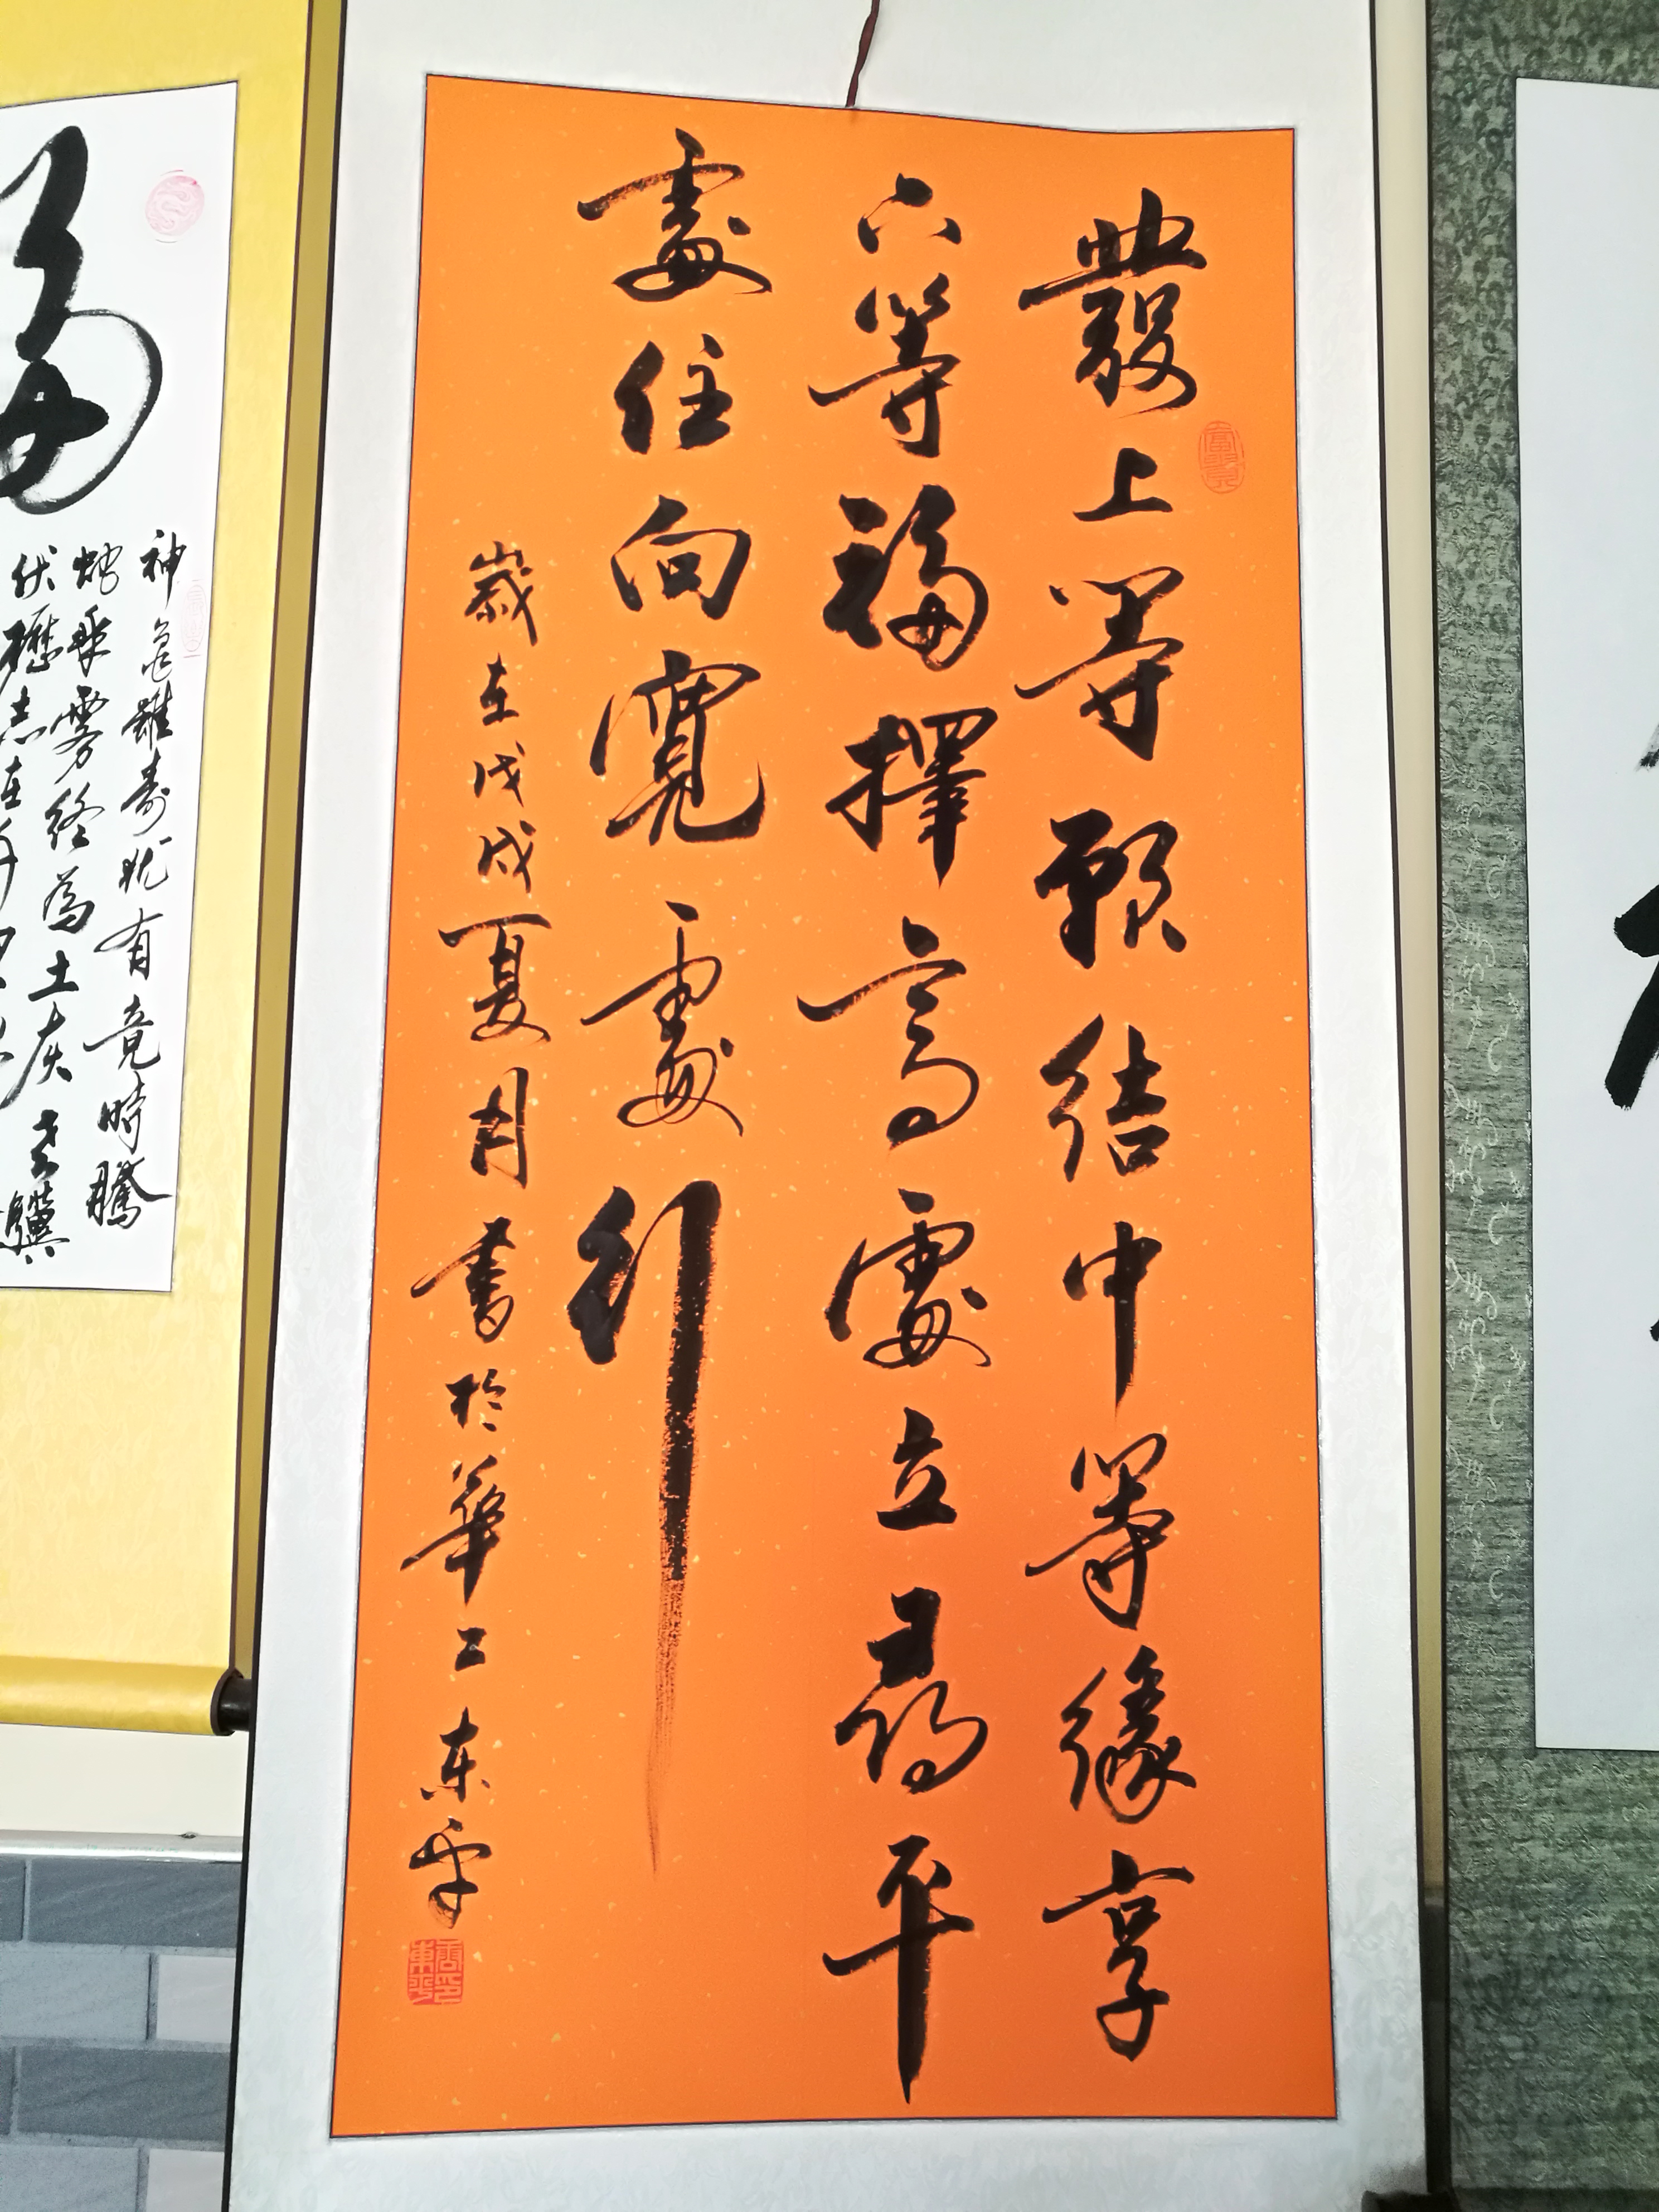 發上等願結中等緣享
下等福擇高處立尋平
處住向寬處行
歲在戊戌夏月書於華工东平
福
神龜雖壽犹有竟時騰
蛇乘雾終為土灰老驥
伏櫪志在千里